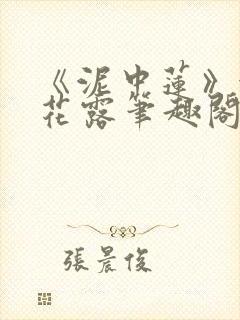 《泥中蓮》
花露筆趣閣
張晨俊